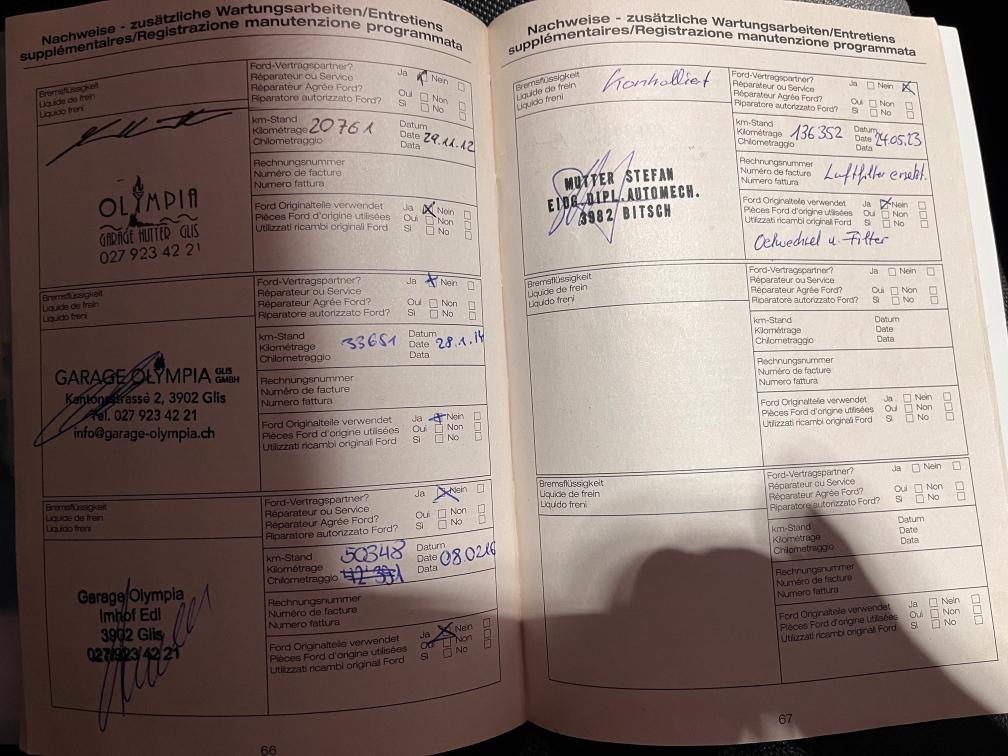 Nachweise - zusätzliche Wartungsarbeiten/Entretiens
supplémentaires/Registrazione manutenzione programmata
Bremsflüssigkeit
Liquide de frein
Liquido freni
OLYMPIA
GARAGE HUTTER GLIS
027 923 42 21
Ford-Vertragspartner? Ja Nein
Réparateur ou Service
Réparateur Agrée Ford? Oui Non
Riparatore autorizzato Ford? Si No
km-Stand
Kilométrage 20761
Chilometraggio
Datum
Date 29.11.12
Data
Rechnungsnummer
Numéro de facture
Numero fattura
Ford Originalteile verwendet Ja Nein
Pièces Ford d'origine utilisées Oui Non
Utilizzati ricambi originali Ford Si No
Bremsflüssigkeit
Liquide de frein
Liquido freni
GARAGE OLYMPIA GLIS GMBH
Kantonsstrasse 2, 3902 Glis
Tel. 027 923 42 21
info@garage-olympia.ch
Ford-Vertragspartner? Ja Nein
Réparateur ou Service
Réparateur Agrée Ford? Oui Non
Riparatore autorizzato Ford? Si No
km-Stand
Kilométrage 33651
Chilometraggio
Datum
Date 28.1.14
Data
Rechnungsnummer
Numéro de facture
Numero fattura
Ford Originalteile verwendet Ja Nein
Pièces Ford d'origine utilisées Oui Non
Utilizzati ricambi originali Ford Si No
Bremsflüssigkeit
Liquide de frein
Liquido freni
Garage Olympia
Imhof Edl
3902 Glis
027/923 42 21
Ford-Vertragspartner? Ja Nein
Réparateur ou Service
Réparateur Agrée Ford? Oui Non
Riparatore autorizzato Ford? Si No
km-Stand 50348
Kilométrage
Chilometraggio
Datum
Date 08.0216
Data
Rechnungsnummer
Numéro de facture
Numero fattura
Ford Originalteile verwendet Ja Nein
Pièces Ford d'origine utilisées Oui Non
Utilizzati ricambi originali Ford Si No
66
Nachweise - zusätzliche Wartungsarbeiten/Entretiens
supplémentaires/Registrazione manutenzione programmata
Bremsflüssigkeit Kontrolliert
Liquide de frein
Liquido freni
MUTTER STEFAN
EIDG.DIPL.AUTOMECH.
3982 BITSCH
Ford-Vertragspartner? Ja Nein
Réparateur ou Service
Réparateur Agrée Ford? Oui Non
Riparatore autorizzato Ford? Si No
km-Stand
Kilométrage 136352
Chilometraggio
Datum
Date 24.05.23
Data
Rechnungsnummer
Numéro de facture Luftfilter ersetzt.
Numero fattura
Ford Originalteile verwendet Ja Nein
Pièces Ford d'origine utilisées Oui Non
Utilizzati ricambi originali Ford Si No
Oelwechsel u. Filter
Bremsflüssigkeit
Liquide de frein
Liquido freni
Ford-Vertragspartner? Ja Nein
Réparateur ou Service
Réparateur Agrée Ford? Oui Non
Riparatore autorizzato Ford? Si No
km-Stand
Kilométrage
Chilometraggio
Datum
Date
Data
Rechnungsnummer
Numéro de facture
Numero fattura
Ford Originalteile verwendet Ja Nein
Pièces Ford d'origine utilisées Oui Non
Utilizzati ricambi originali Ford Si No
Bremsflüssigkeit
Liquide de frein
Liquido freni
Ford-Vertragspartner? Ja Nein
Réparateur ou Service
Réparateur Agrée Ford? Oui Non
Riparatore autorizzato Ford? Si No
km-Stand
Kilométrage
Chilometraggio
Datum
Date
Data
Rechnungsnummer
Numéro de facture
Numero fattura
Ford Originalteile verwendet Ja Nein
Pièces Ford d'origine utilisées Oui Non
Utilizzati ricambi originali Ford Si No
67